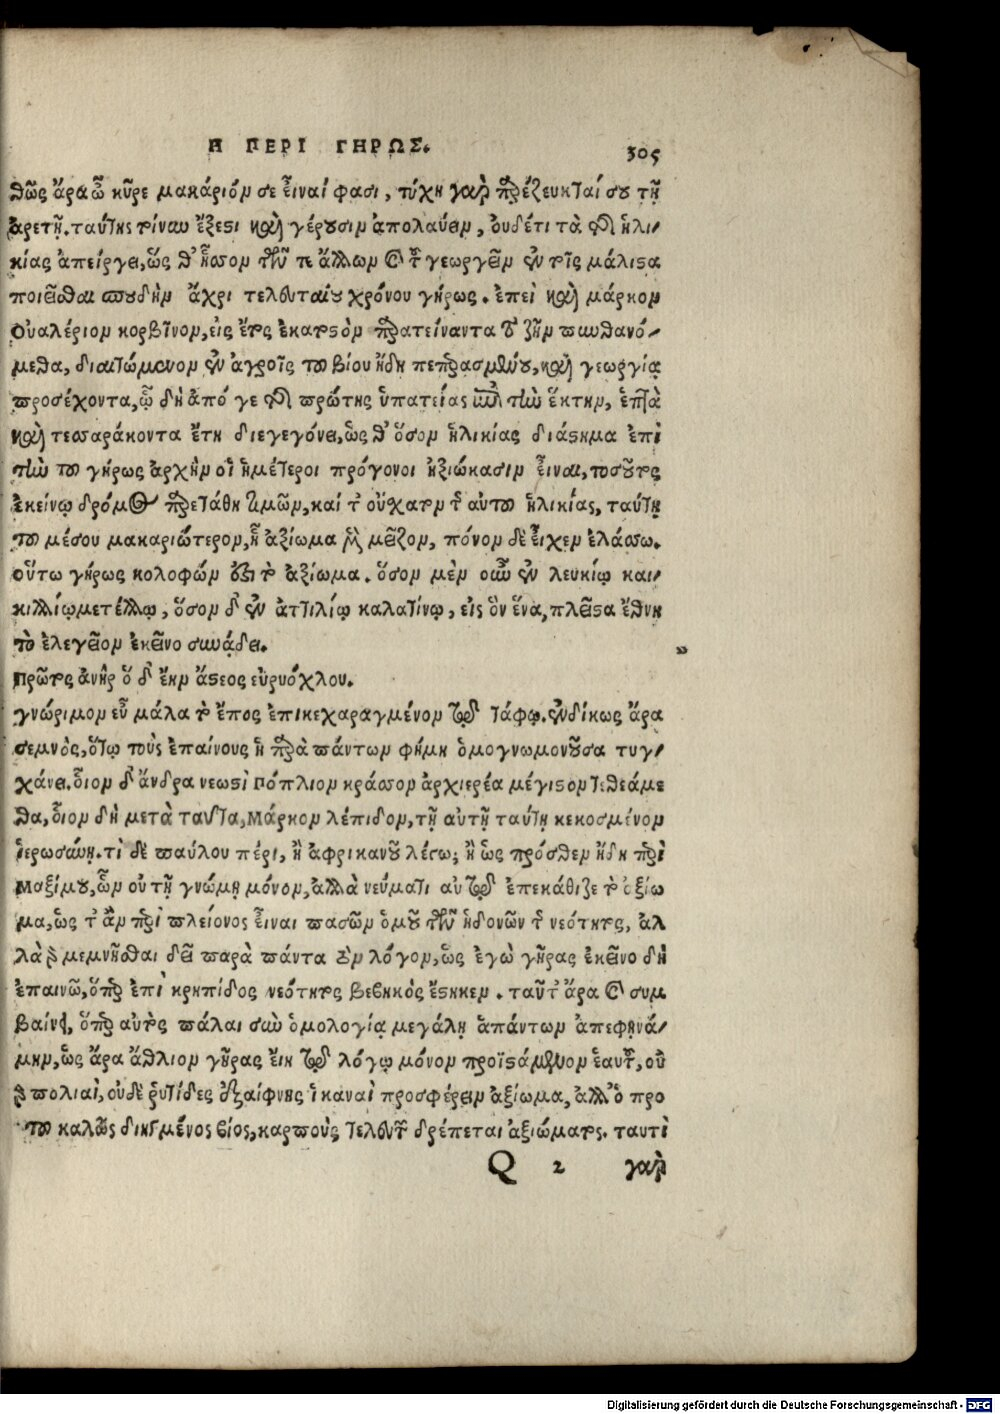 Η ΠΕΡΙ ΓΗΡΩΣ. 305
θῶς ἄρα ὦ κῦρε μακάριόν σε εἶναί φασι, τύχη γὰρ προσέζευκταί σου τῇ
ἀρετῇ. ταύτης τίνων ἔξεστι καὶ γέρουσιν ἀπολαύειν, οὐδέτι τὰ τῆς ἡλι-
κίας ἀπείργει, ὥς θ᾽ ἧσσον τῶν τε ἄλλων καὶ τοῦ γεωργεῖν ἐν τοῖς μάλιστα
ποιεῖσθαι σπουδὴν ἄχρι τελευταίου χρόνου γήρως. ἐπεὶ καὶ μάρκον
Οὐαλέριον κορβῖνον, εἰς ἔτος ἑκατοστὸν παρατείναντα τὸ ζῆν πυνθανό-
μεθα, διαιτώμενον ἐν ἀγροῖς τοῦ βίου ἤδη πεπρασμένου, καὶ γεωργίᾳ
προσέχοντα, ᾧ δὴ ἀπό γε τῆς πρώτης ὑπατείας ἐπὶ τὴν ἕκτην, ἑπτὰ
καὶ τεσσαράκοντα ἔτη διεγεγόνει, ὥς θ᾽ ὅσον ἡλικίας διάστημα ἐπὶ
τὴν τοῦ γήρως ἀρχὴν οἱ ἡμέτεροι πρόγονοι ἠξιώκασιν εἶναι, τοσοῦτος
ἐκείνῳ δρόμος παρετάθη τιμῶν, καί τ᾽ οὔχατον τῆς αὐτοῦ ἡλικίας, ταύτῃ
τοῦ μέσου μακαριώτερον, ᾗ ἀξίωμα μὲν μεῖζον, πόνον δὲ εἶχεν ἐλάσσω.
οὕτω γήρως κολοφών ἐστι τὸ ἀξίωμα. ὅσον μὲν οὖν ἐν λευκίῳ και-
κιλλίῳ μετέλλῳ, ὅσον δ᾽ ἐν ἀττιλίῳ καλατίνῳ, εἰς ὃν ἕνα, πλεῖστα ἔθνη
τὸ ἐλεγεῖον ἐκεῖνο συνᾴδει.
Πρῶτος ἀνὴρ ὅ δ᾽ ἔην ἄστεος εὐρυόχλου.
γνώριμον εὖ μάλα τὸ ἔπος ἐπικεχαραγμένον τῷ τάφῳ. ἐνδίκως ἄρα
σεμνὸς, ὅτῳ τοὺς ἐπαίνους ἡ παρὰ πάντων φήμη ὁμογνωμονοῦσα τυγ-
χάνει. οἷον δ᾽ ἄνδρα νεωστὶ Πόπλιον κράσσον ἀρχιερέα μέγιστον τεθεάμε
θα, οἷον δὴ μετὰ ταῦτα, Μάρκον λέπιδον, τῇ αὐτῇ ταύτῃ κεκοσμένον
ἱερωσύνῃ. τὶ δὲ παύλου πέρι, ἢ ἀφρικανοῦ λέγω; ἢ ὡς πρόσθεν ἤδη περὶ
Μαξίμου, ὧν οὐ τῇ γνώμῃ μόνον, ἀλλὰ νεύματι αὐτῷ ἐπεκάθιζε τὸ ἀξίω
μα, ὡς τ᾽ ἂν περὶ πλείονος εἶναι πασῶν ὁμοῦ τῶν ἡδονῶν τῆς νεότητος, ἀλ
λὰ μεμνῆσθαι δεῖ παρὰ πάντα τὸν λόγον, ὡς ἐγὼ γῆρας ἐκεῖνο δὴ
ἐπαινῶ, ὅπερ ἐπὶ κρηπίδος νεότητος βεβηκὸς ἕστηκεν. ταῦτ᾽ ἄρα καὶ συμ
βαίνει, ὅπερ αὐτὸς πάλαι σὺν ὁμολογίᾳ μεγάλῃ ἁπάντων ἀπεφηνά-
μην, ὡς ἄρα ἄθλιον γῆρας εἴη τῷ λόγῳ μόνον προϊστάμενον ἑαυτοῦ, οὐ
πολιαὶ, οὐδὲ ῥυτίδες ἐξαίφνης ἱκαναὶ προσφέρειν ἀξίωμα, ἀλλ᾽ ὁ προ
τοῦ καλῶς διηγμένος βίος, καρποὺς τελευτῶν δρέπεται ἀξιώματος. ταυτὶ
Q 2 γὰρ
Digitalisierung gefördert durch die Deutsche Forschungsgemeinschaft - DFG